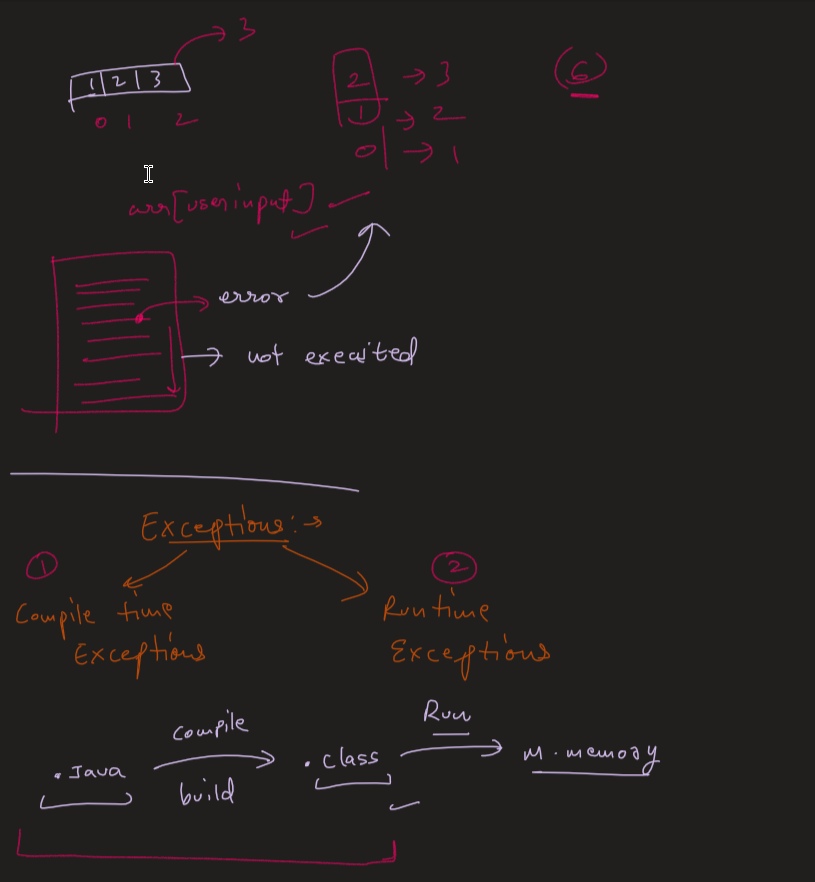 3
1 2 3
0 1 2
2 → 3
1 → 2
0 → 1
(6)
arr[userinput]
error
not executed
Exceptions:→
1
Compile time
Exceptions
2
Runtime
Exceptions
.Java
Compile
build
.class
Run
M.memory